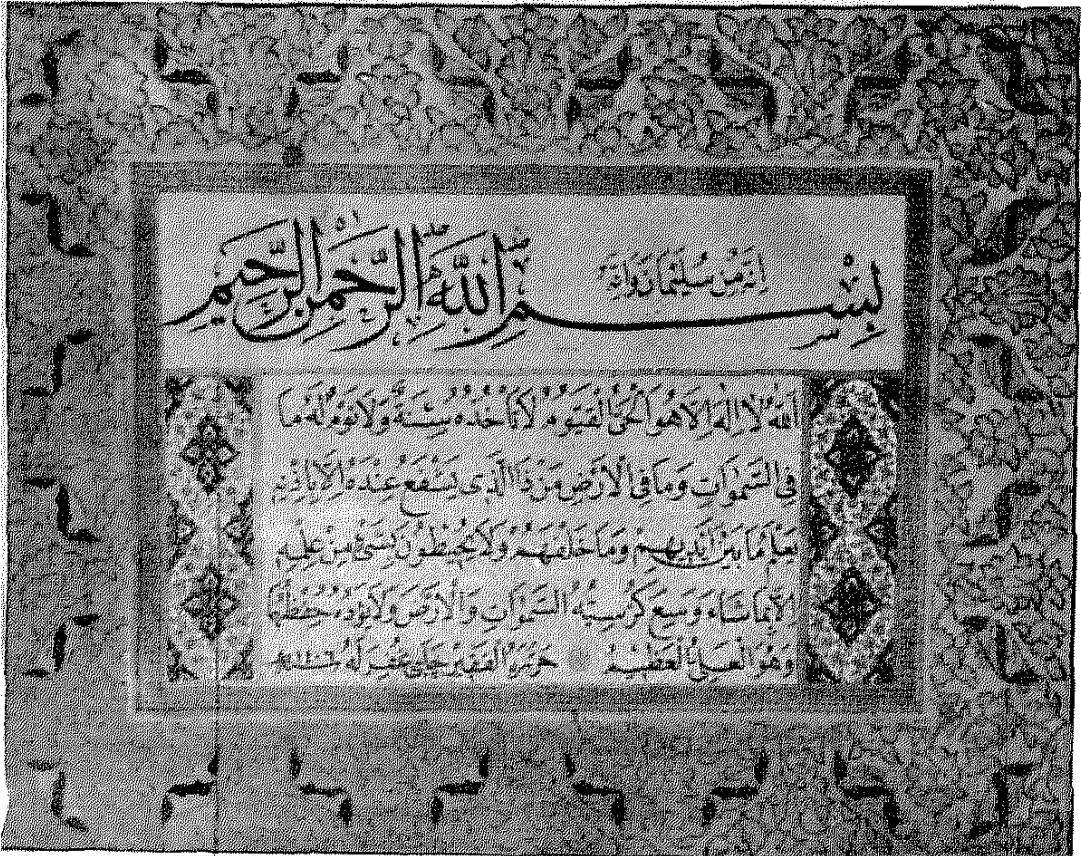 إنه من سليمان وإنه
بسم الله الرحمن الرحيم
الله لا إله إلا هو الحي القيوم لا تأخذه سنة ولا نوم له ما
في السموات وما في الأرض من ذا الذي يشفع عنده إلا بإذنه
يعلم ما بين أيديهم وما خلفهم ولا يحيطون بشيء من علمه
إلا بما شاء وسع كرسيه السموات والأرض ولا يؤده حفظهما
وهو العلي العظيم حرره الفقير غفر له